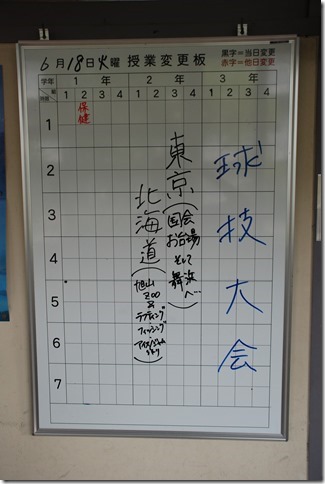 6月18日火曜 授業変更板
黒字=当日変更
赤字=他日変更
学年 1年 2年 3年
限 組 1 2 3 4 1 2 3 4 1 2 3 4
1
2
3
4
5
6
7
保健
東京(国会
お台場
そして
舞浜
へ…)
北海道(旭山
ZOO
ラフティング
フィッシング
球技大会